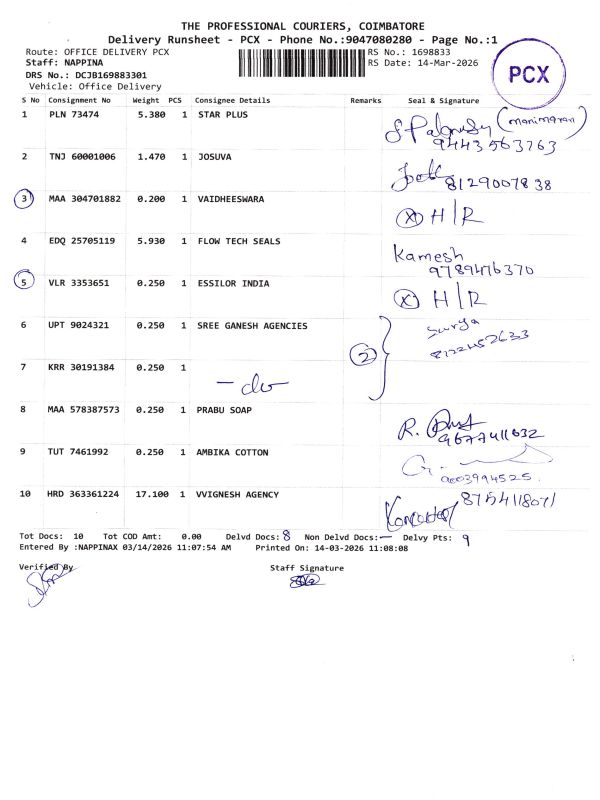 THE PROFESSIONAL COURIERS, COIMBATORE
Delivery Runsheet - PCX - Phone No.:9047080280 - Page No.:1
Route: OFFICE DELIVERY PCX
RS No.: 1698833
Staff: NAPPINA
RS Date: 14-Mar-2026
PCX
DRS No.: DCJB169883301
Vehicle: Office Delivery
S No Consignment No Weight PCS Consignee Details Remarks Seal & Signature
1 PLN 73474 5.380 1 STAR PLUS (manimaran)
9443563763
2 TNJ 60001006 1.470 1 JOSUVA
8129007838
3 MAA 304701882 0.200 1 VAIDHEESWARA
X H/R
4 EDQ 25705119 5.930 1 FLOW TECH SEALS Kamesh
9789476370
5 VLR 3353651 0.250 1 ESSILOR INDIA X H/R
6 UPT 9024321 0.250 1 SREE GANESH AGENCIES Surya
2
7 KRR 30191384 0.250 1
- do
8 MAA 578387573 0.250 1 PRABU SOAP R.
9677411632
9 TUT 7461992 0.250 1 AMBIKA COTTON
9003994525
10 HRD 363361224 17.100 1 VVIGNESH AGENCY 8754118071
Tot Docs: 10 Tot COD Amt: 0.00 Delvd Docs: 8 Non Delvd Docs: — Delvy Pts: 9
Entered By :NAPPINAX 03/14/2026 11:07:54 AM Printed On: 14-03-2026 11:08:08
Verified By Staff Signature